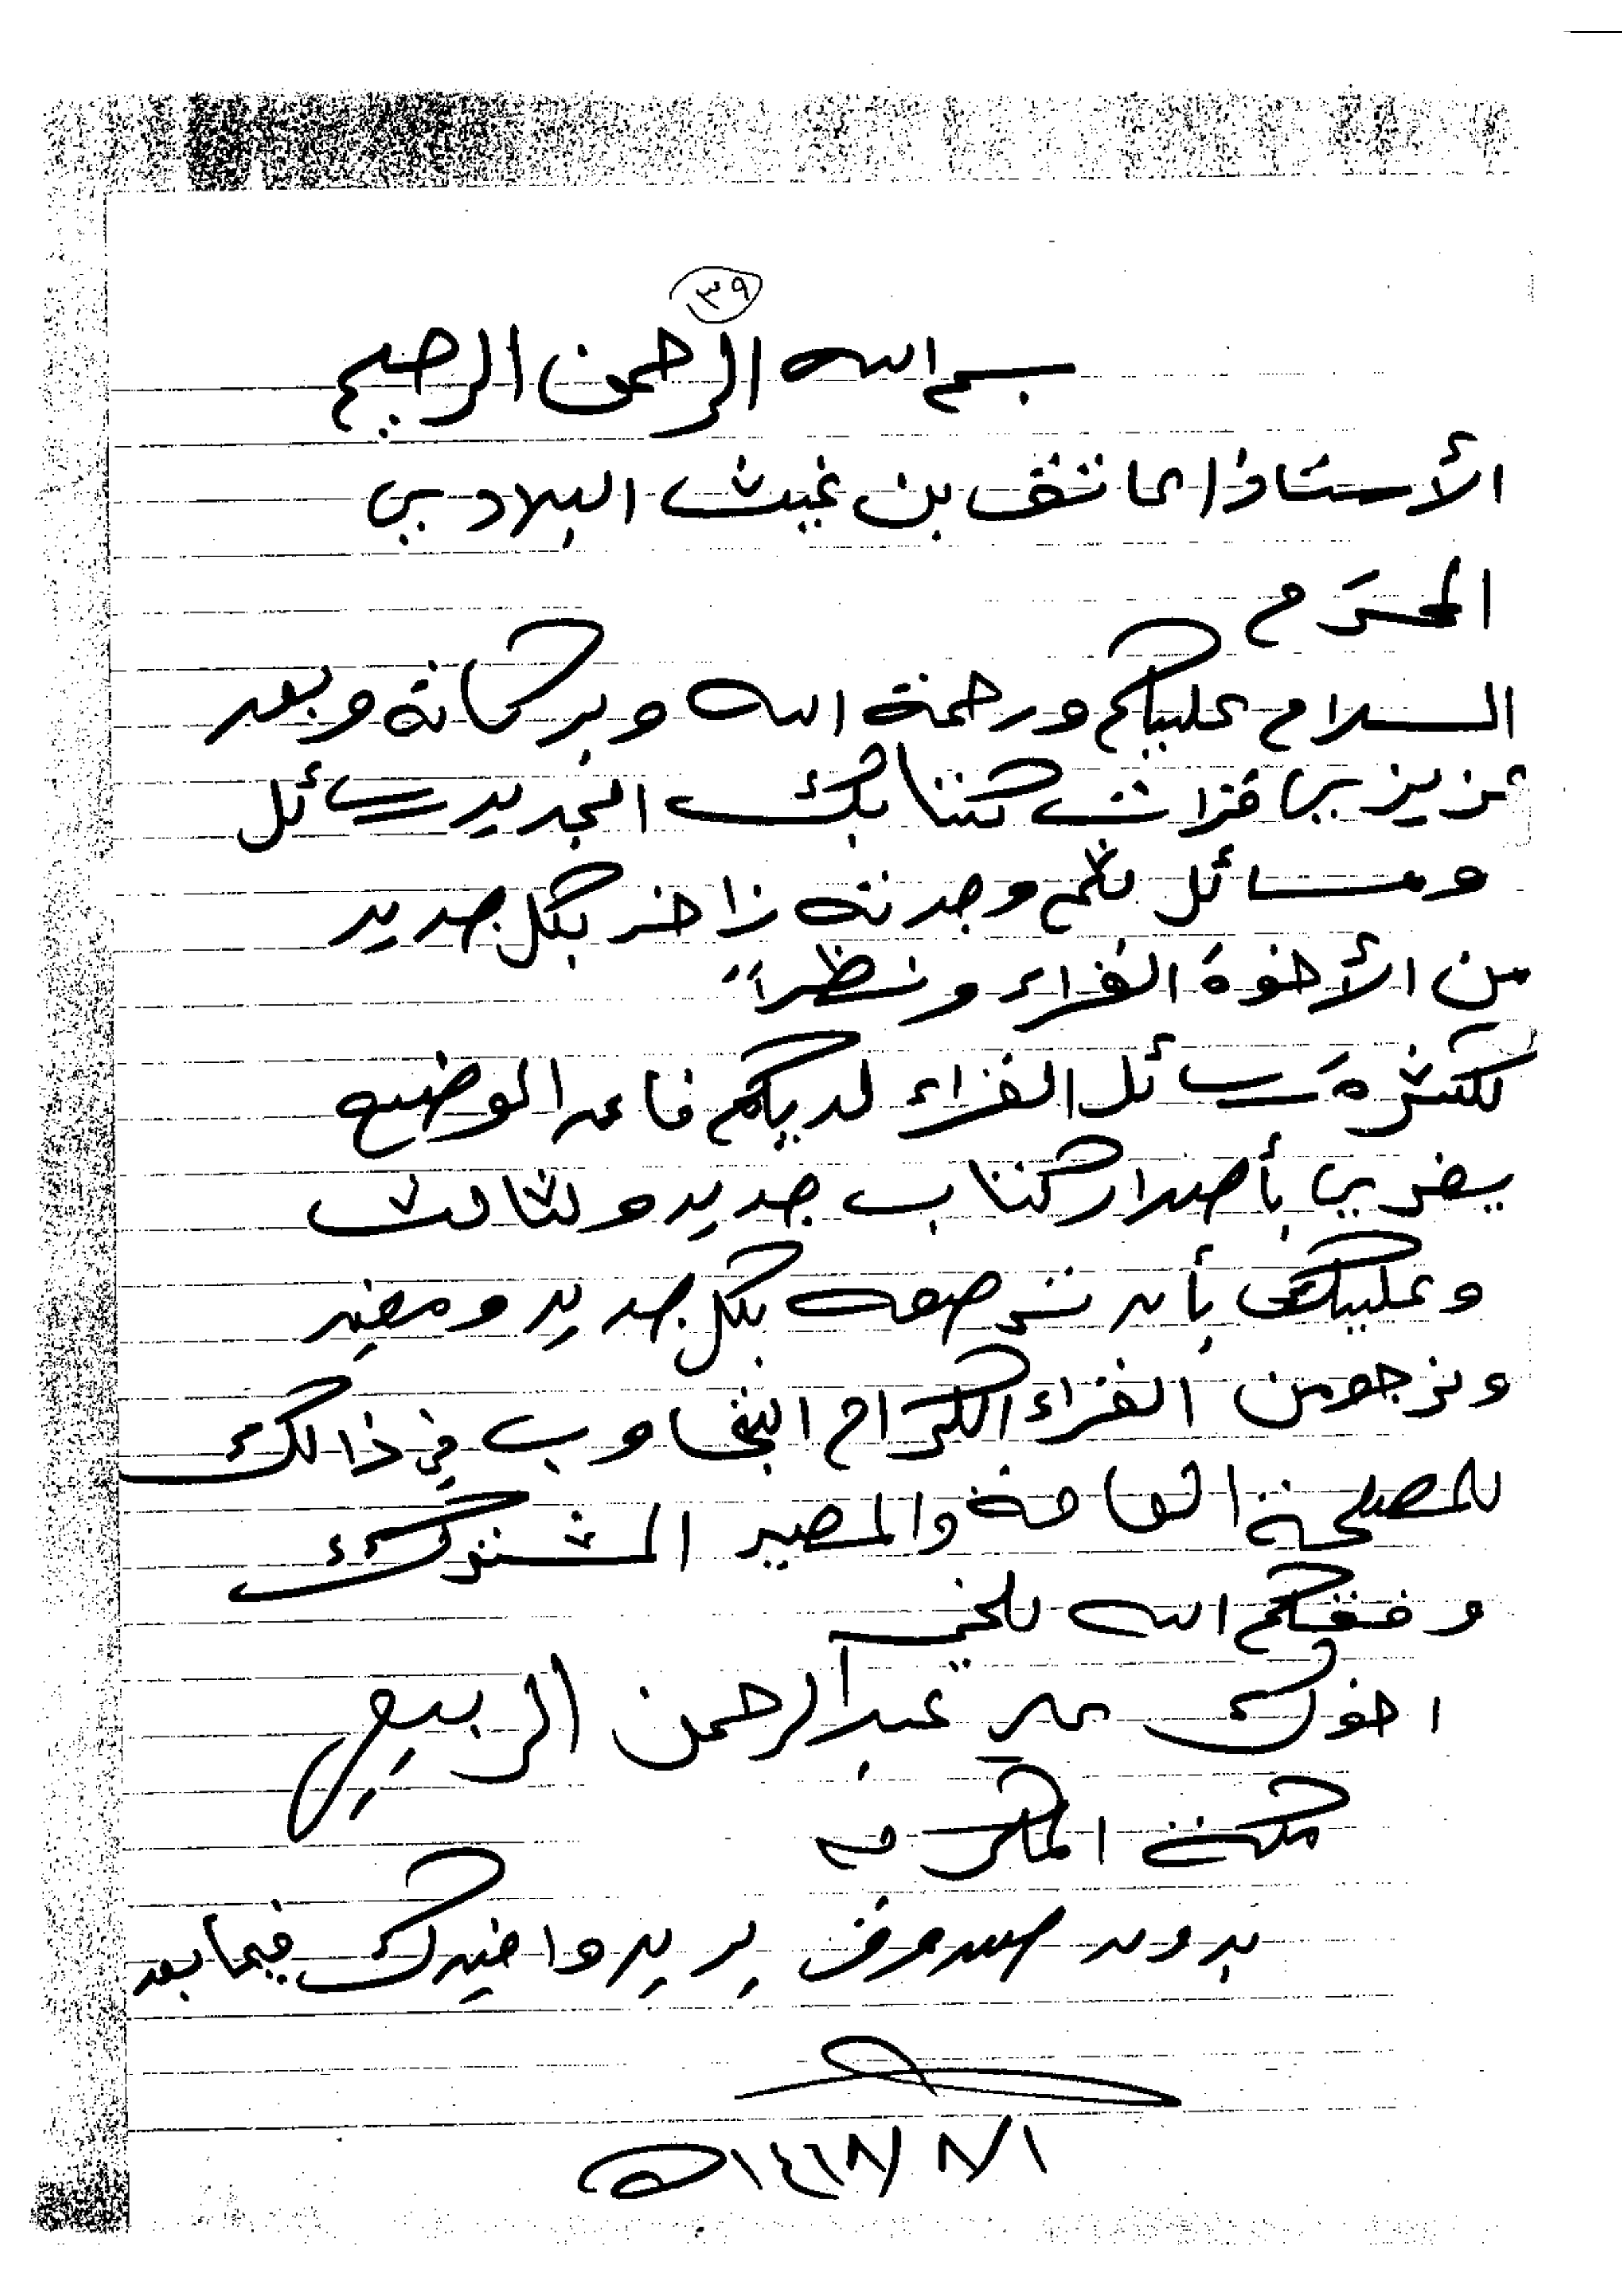 ٣٩
بسم الله الرحمن الرحيم
الأستاذ/ عاتق بن غيث البلادي
المحترم
السلام عليكم ورحمة الله وبركاته وبعد
عزيزي قرات كتابك الجديد رسائل
ومسائل فلم وجدته زاخر بكل جديد
من الأخوة القراء ونظراً
لكثرة رسائل القراء لديكم فان الوضع
يغري بأصدار كتاب جديد وثالث
وعليك بأن ترصعه بكل جديد ومفيد
ونرجو من القراء الكرام التجاوب في ذالك
للمصلحة العامة والمصير المشترك
وفقكم الله للخير
اخوك علي عبدالرحمن الربيعي
مكة المكرمه
بدون صندوق بريد وافيدك فيما بعد
١/ ٨/ ١٤١٨هـ